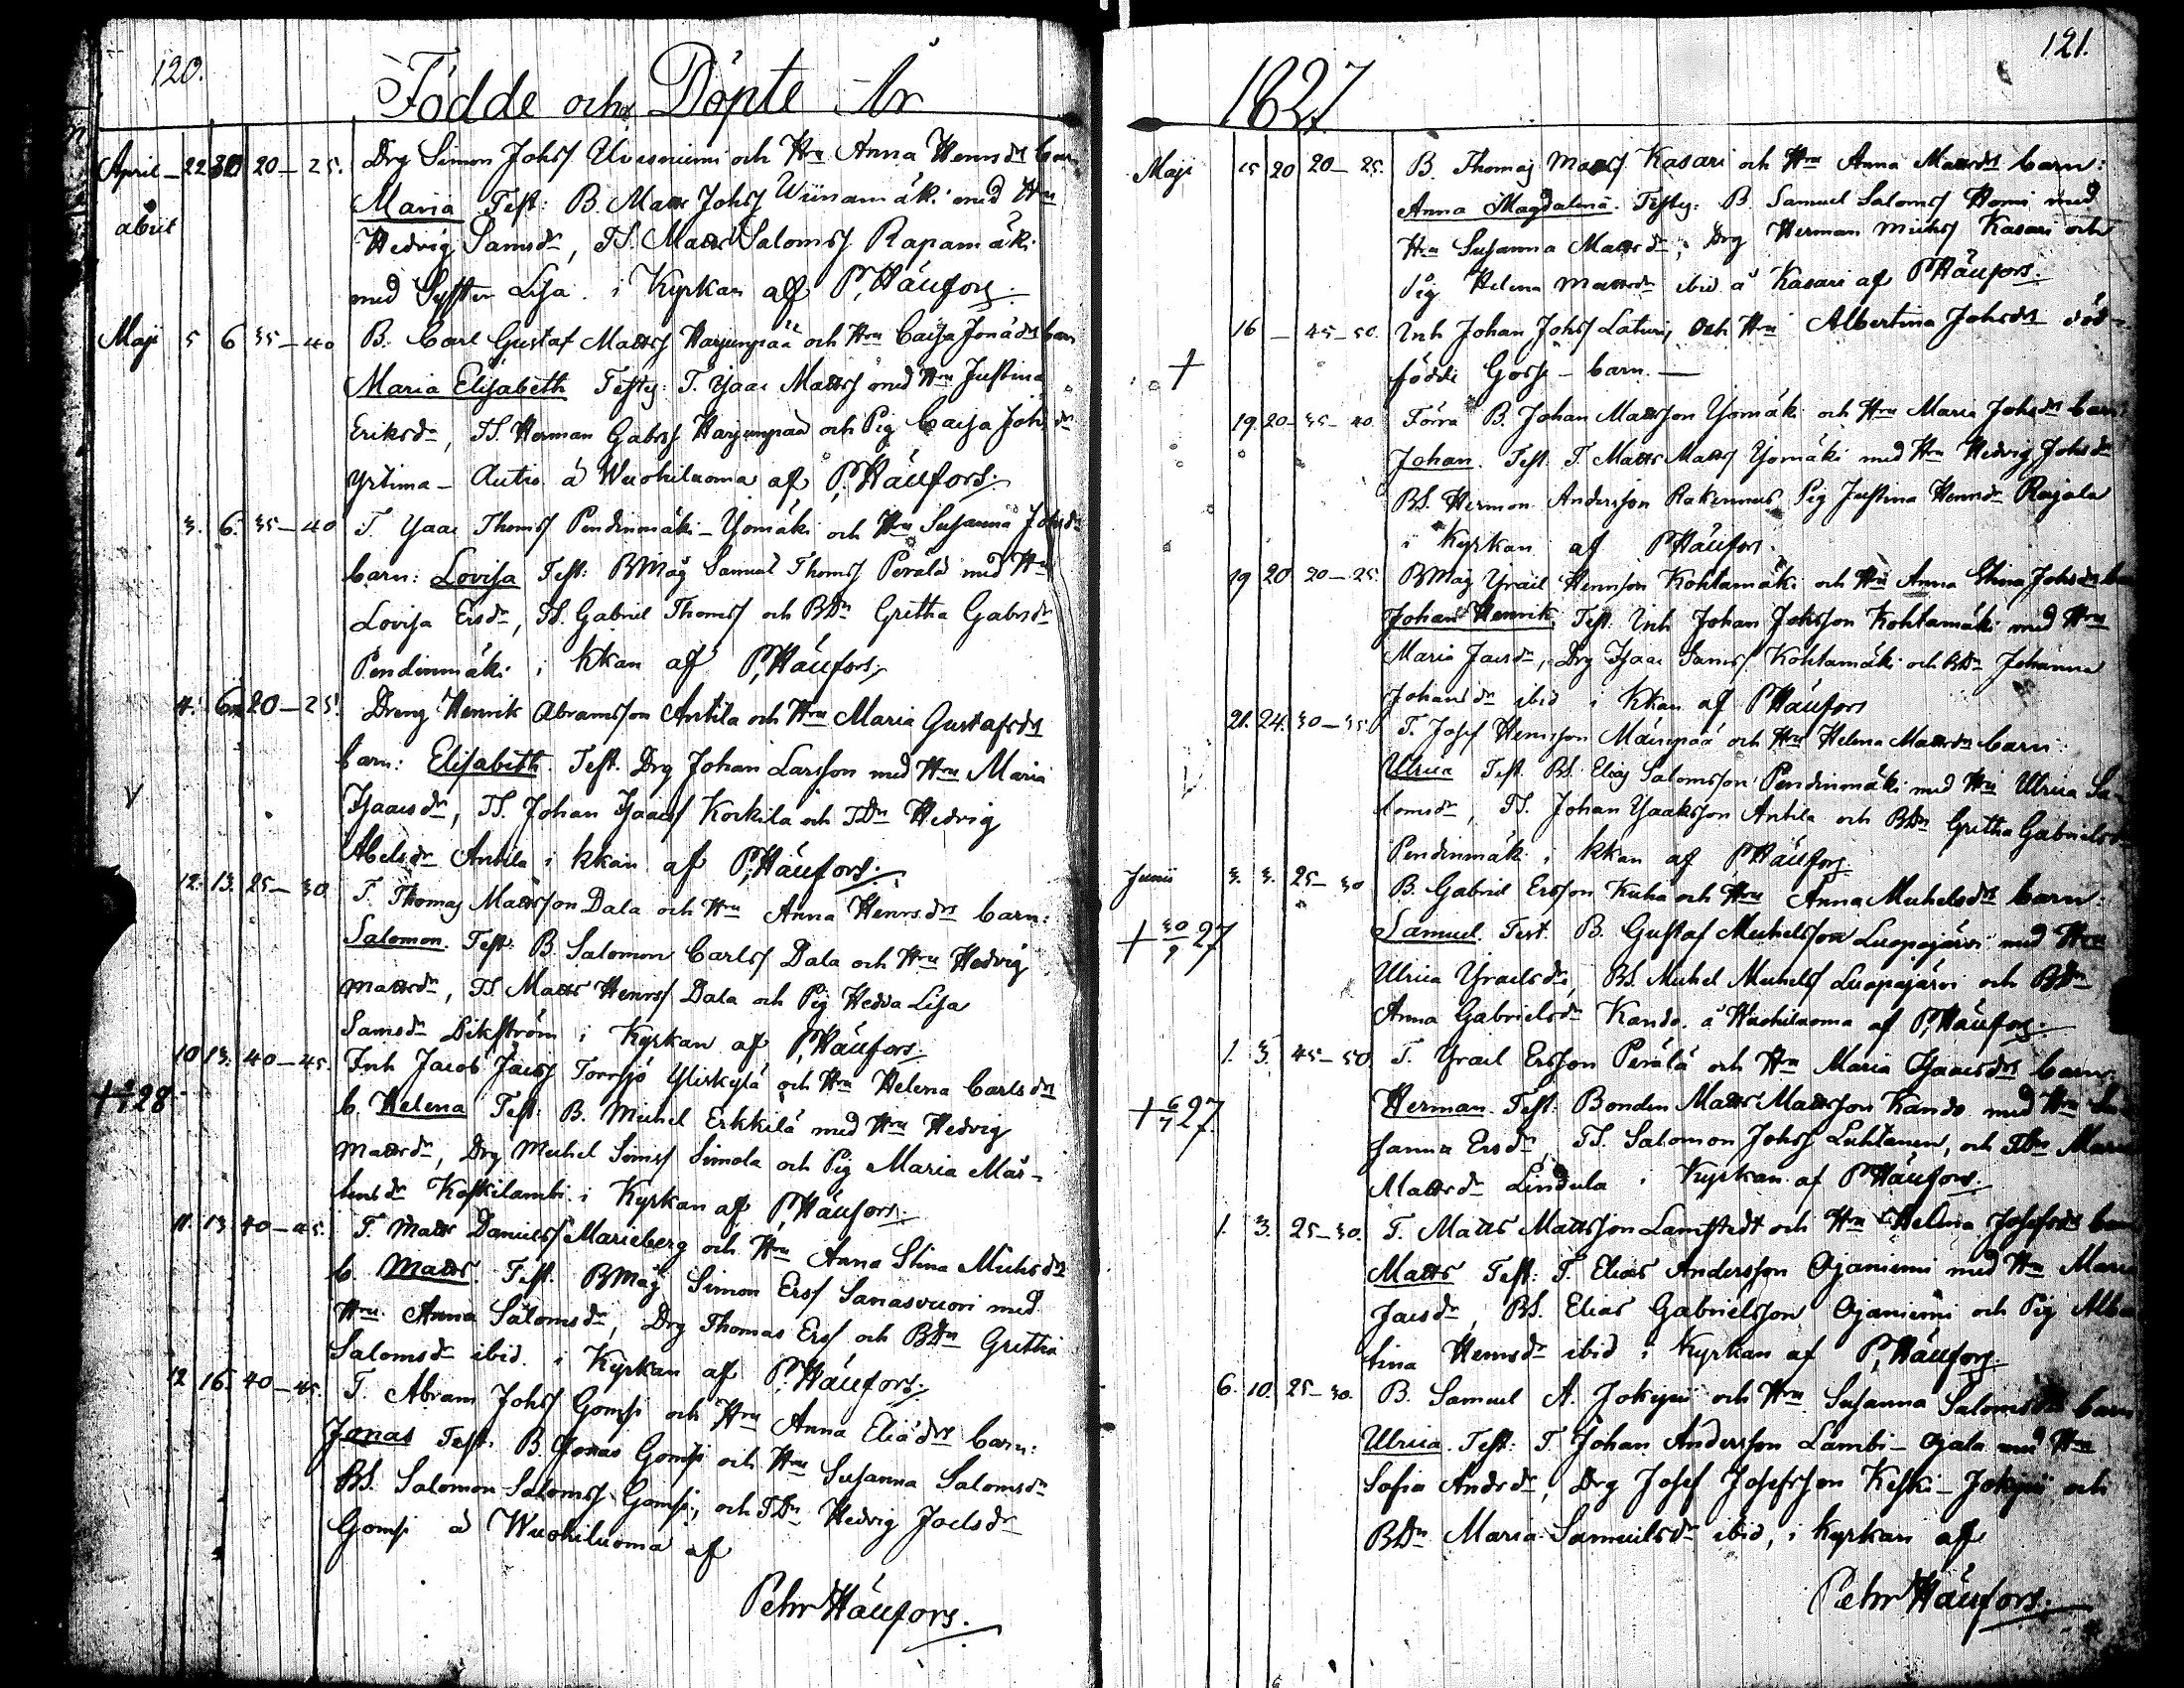 120.
Födde och Döpte År
April 22 30 20–25. Drg Simon Johsſ Uvesniemi och Hru Anna Henrsdrs barn
abiit Maria Test: B. Matts Johsſ Wiinamäki med Hru
Hedvig Samsdr, TS. Matts Salomsſ Rapamäki
med Syster Lisa. i Kyrkan af P. Häufors.
Maji 5 6 35–40 B. Carl Gustaf Mattsſ Harjunpää och Hru Caisa Jonädrs barn
Maria Elisabeth Testes: T. Isaac Mattsſ med Hru Justina
Eriksdr, TS. Herman Gabrsſ Harjunpää och Pig Caisa Johsdr
Yrtima-Autio. å Wuohiluoma af P. Häufors.
3. 6. 35–40 T. Isaac Thomsſ Pendinmäki-Yomäki och Hru Susanna Johsdrs
barn: Lovisa Test: BMåg Samuel Thomsſ Perälä med Hru
Lovisa Ersdr, TS. Gabriel Thomsſ och BDr Gretha Gabrsdr
Pendinmäki i Kkan af P. Häufors.
4. 6 20–25. Dreng Henrik Abramsson Antila och Hru Maria Gustafsdrs
barn: Elisabeth. Test. Drg Johan Larsson med Hru Maria
Isaacsdr, TS. Johan Isaacsſ Korkila och TDr Hedvig
Abelsdr Antila i kkan af P. Häufors.
12. 13. 25–30 T. Thomas Mattsson Dala och Hru Anna Henrsdrs barn:
Salomon. Test: B Salomon Carlsſ Dala och Hru Hedvig
Mattsdr, TS. Matts Henrsſ Dala och Pig Hedda Lisa
Samsdr Dikström i Kyrkan af P. Häufors.
10 13. 40–45. Inh Jacob Jacsſ Torrsjö Yliskylä och Hru Helena Carlsdrs
28 b. Helena Test: B. Michel Erkkilä med Hru Hedvig
Mattsdr, Drg Michel Simsſ Simola och Pig Maria Mår-
tensdr Koskilambi i Kyrkan af P. Häufors.
11. 13. 40–45. T. Matts Danielsſ Marieberg och Hru Anna Stina Michsdrs
b. Matts. Test. BMåg Simon Ersſ Sanasvuori med
Hru Anna Salomsdr, Drg Thomas Ersſ och BDr Gretha
Salomsdr ibid. i Kyrkan af P. Häufors.
12 16. 40–45. T. Abram Johsſ Gomsi och Hru Anna Eliædrs barn:
Jonas Test. B. Jonas Gomsi och Hru Susanna Salomsdr
BS. Salomon Salomsſ Gomsi, och TDr Hedvig Joelsdr
Gomsi å Wuohiluoma af
Pehr Häufors.
121.
1827.
Maji 15 20 20–25. B. Thomas Mattsſ Kasari och Hru Anna Mattsdrs barn:
Anna Magdalena. Testes: B. Samuel Salomsſ Homi med
Hru Susanna Mattsdr; Drg Herman Michsſ Kasari och
Pig Helena Mattsdr ibid å Kasari af P Häufors.
16 – 45–50. Inh Johan Johsſ Laturi, och Hru Albertina Johsdrs död-
+ födde Gosse-barn.
19. 20– 35–40. Förra B. Johan Mattsson Yomäki och Hru Maria Johsdrs barn
Johan. Test. T. Matts Mattsſ Yomäki med Hru Hedvig Johsdr
BS. Herman Andersson Rakennus Pig Justina Henrsdr Rajala
i Kyrkan af P Häufors.
19 20 20–25. BMåg Israel Henrsson Kohtamäki och Hru Anna Stina Johsdrs
Johan Henrik Test. Inh Johan Johsson Kohtamäki med Hru
Maria Jacsdr, Drg Isaac Samsſ Kohtamäki och BDr Johanna
Johansdr ibid i kkan af P Häufors
21. 24. 30–35. T. Josef Henrsson Mäenpää och Hru Helena Mattsdrs barn:
Ulrica Test. BS. Elias Salomsson Pendinmäki med Hru Ulrica Sa-
lomsdr, TS. Johan Isaaksson Antila och BDr Gretha Gabrielsdr
Pendinmäki i kkan af P Häufors.
Junii 3. 3. 25–30 B. Gabriel Ersson Kuha och Hru Anna Michelsdrs barn:
+ 30/9 27 Samuel. Test. B. Gustaf Michelsson Luopajärvi med Hru
Ulrica Israelsdr, BS. Michel Michelsſ Luopajärvi och BDr
Anna Gabrielsdr Kando. å Wuohiluoma af P. Häufors.
1. 3. 45–50 T. Israel Ersson Perälä och Hru Maria Isaacsdrs barn:
+ 6/7 27. Herman. Test: Bonden Matts Mattsson Kando med Hru Su-
sanna Ersdr, TS. Salomon Johsſ Luhtanen, och TDr Maria
Mattsdr Lindula i Kyrkan af P Häufors.
1. 3. 25–30. T. Matts Mattsson Lamstedt och Hru Helena Josefsdrs barn
Matts Test: T. Elias Andersson Ojaniemi med Hru Maria
Jacsdr, BS. Elias Gabrielsson Ojaniemi och Pig Alber
tina Henrsdr ibid i Kyrkan af P. Häufors.
6. 10. 25–30. B. Samuel A. Jokipii och Hru Susanna Salomsdrs barn
Ulrica. Test: T. Johan Andersson Lambi-Ojala med Hru
Sofia Andrsdr, Drg Josef Josefsson Keski-Jokipii och
BDr Maria Samuelsdr ibid, i Kyrkan af
Pehr Häufors.